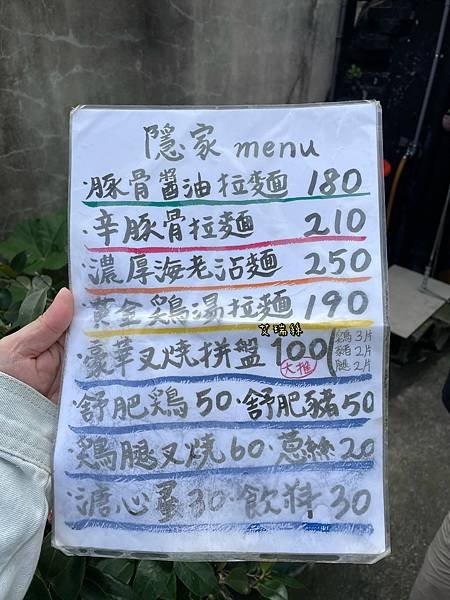 隱家 menu
·豚骨醬油拉麵 180
·辛豚骨拉麵 210
·濃厚海老沾麵 250
黃金鶏湯拉麵 190
艾瑞絲
·豪華叉燒拼盤 100
大推
鶏3片
豬2片
腿2片
·舒肥鶏 50·舒肥豬 50
·鶏腿叉燒 60·蔥絲 20
·溏心蛋 30·飲料 30